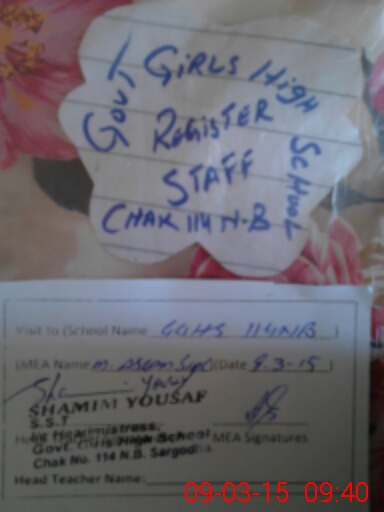 GOVT GIRLS HIGH SCHOOL
REGISTER
STAFF
CHAK 114 N.B
Visit to (School Name GGHS 114NB )
(MEA Name M (Date 9-3-15 )
SHAMIM YOUSAF
S.S.T
Headmistress,
Govt. Girls High School MEA Signatures
Chak No. 114 N.B. Sargodha.
Head Teacher Name:
09-03-15 09:40